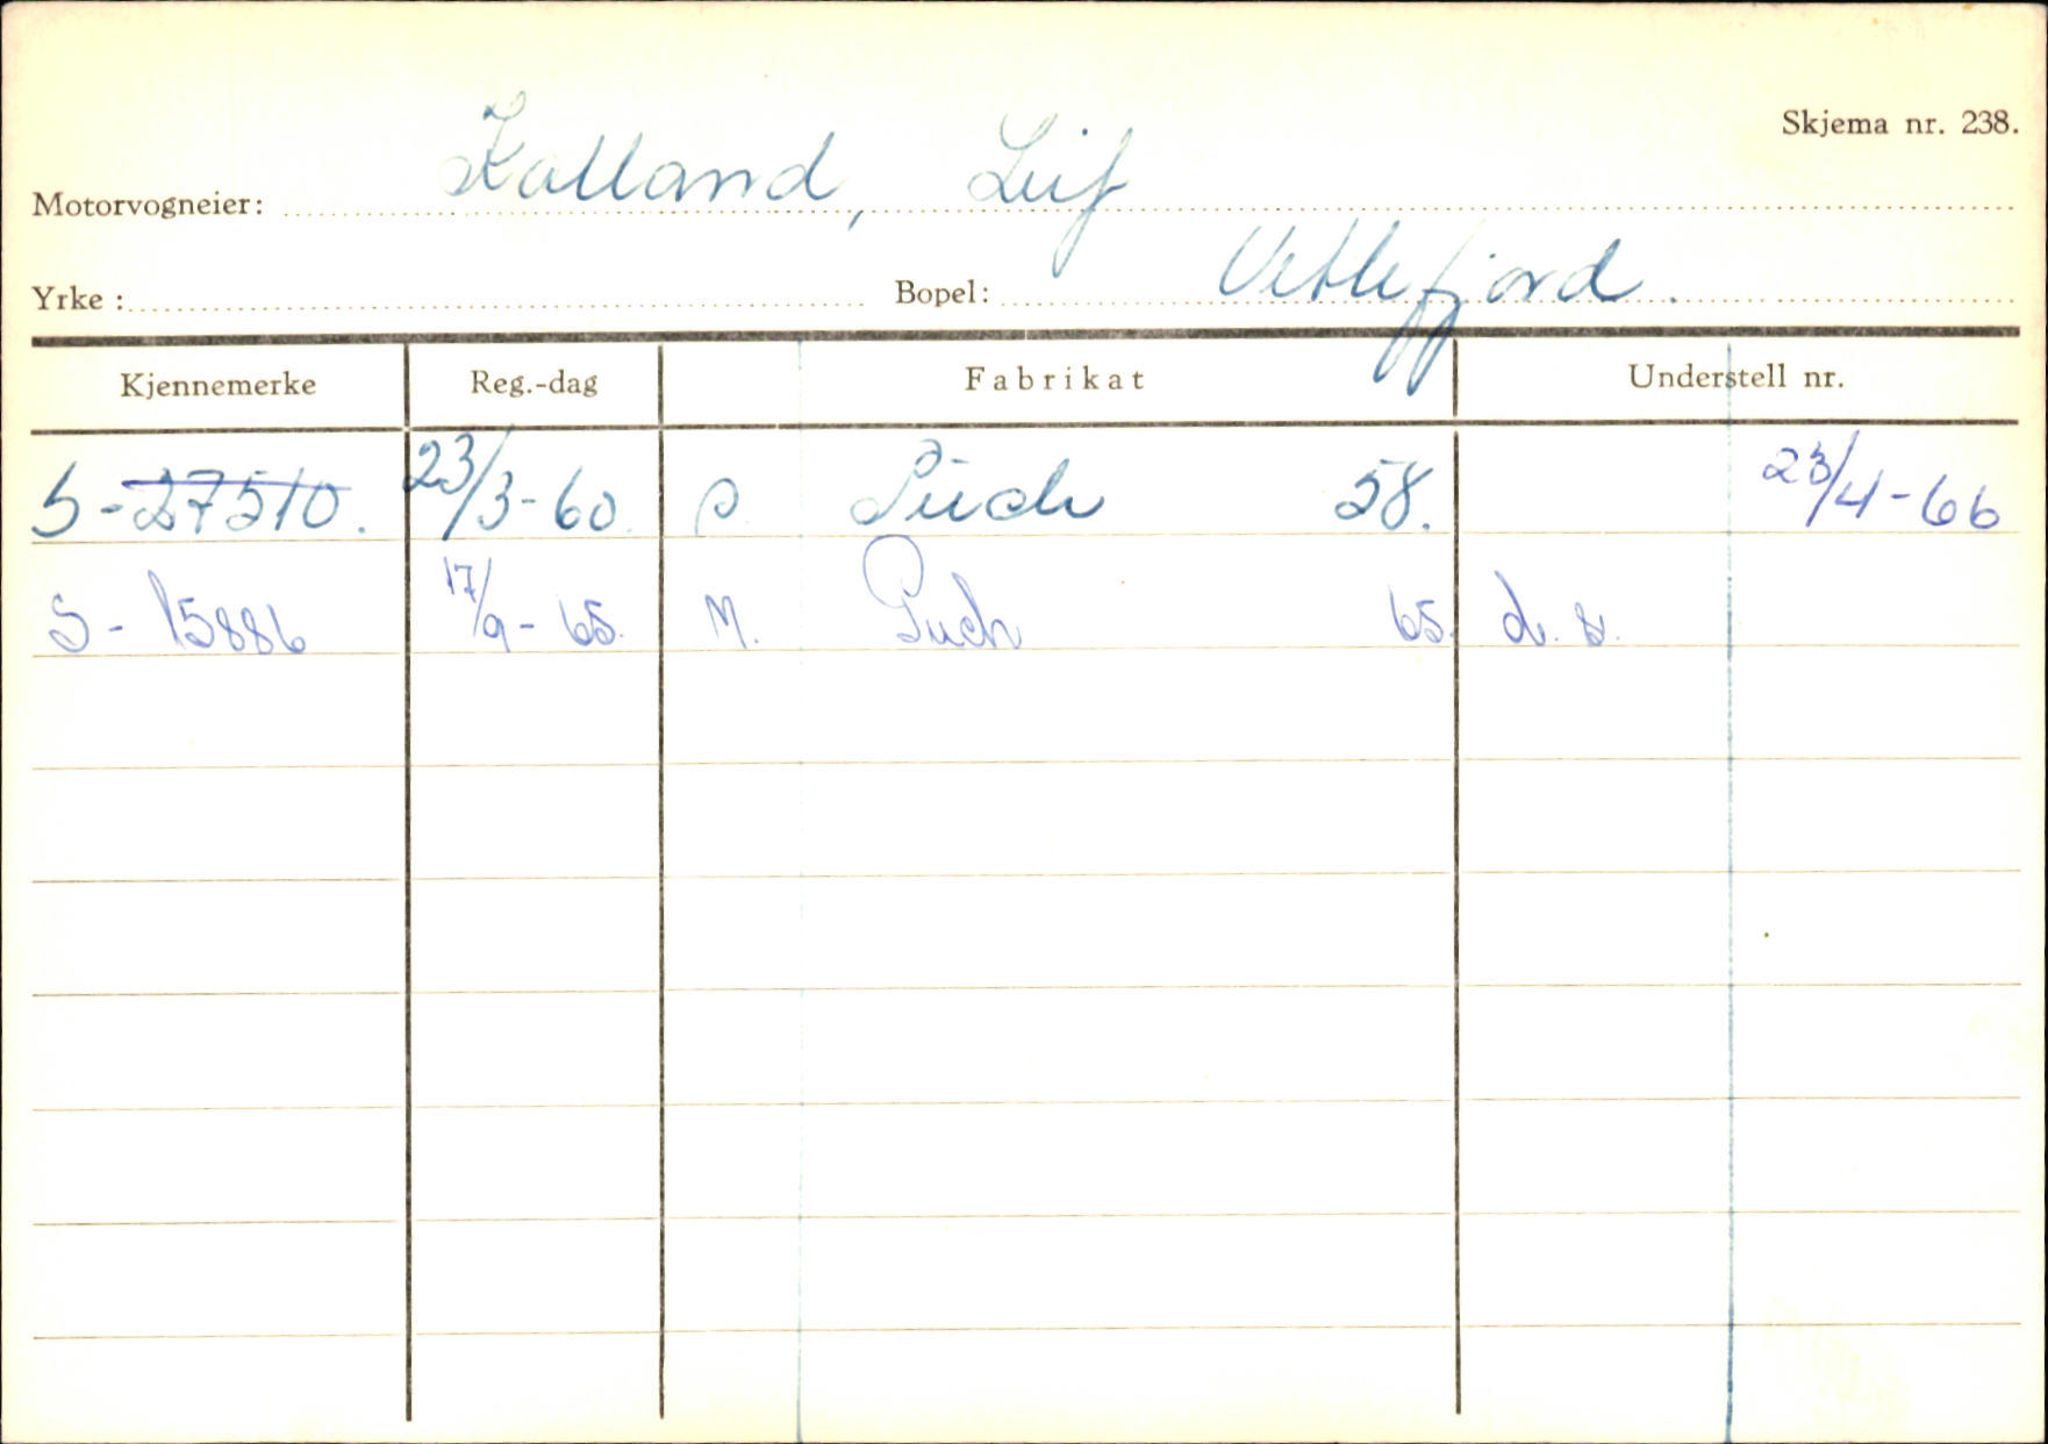 Skjema nr. 238.
Motorvogneier: Kalland, Leif
Yrke: Bopel: Vetlefjord.
Kjennemerke Reg.-dag Fabrikat Understell nr.
S-27510. 23/3-60 Puch 58. 23/4-66
S-15886 17/9-65. M. Puch 65. d.s.